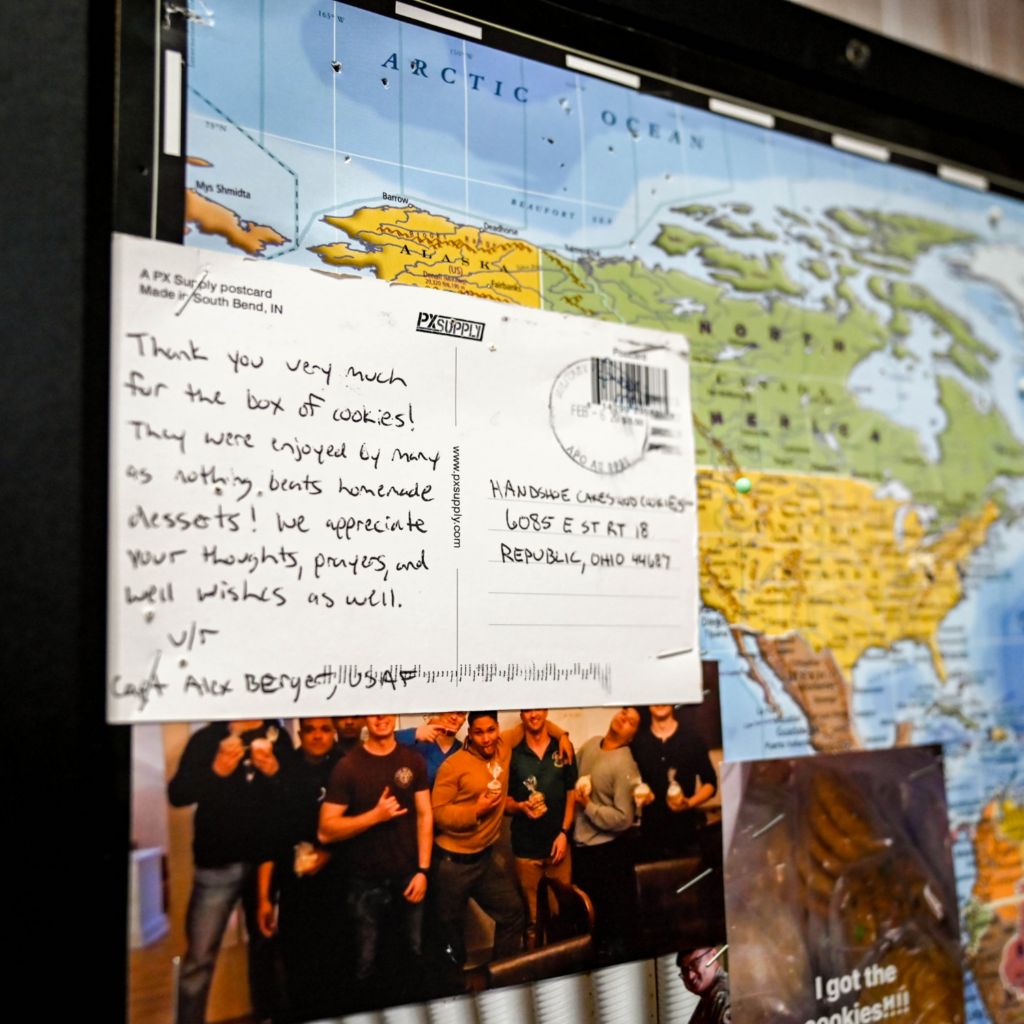 165° W
ARCTIC OCEAN
75°N
Mys Shmidta
Barrow
BEAUFORT SEA
Deadhorse
ALASKA
(US)
Fairbanks
NORTH
AMERICA
A PX Supply postcard
Made in South Bend, IN
PX SUPPLY
Thank you very much
for the box of cookies!
They were enjoyed by many
as nothing beats homemade
desserts! We appreciate
your thoughts, prayers, and
well wishes as well.
v/r
Capt Alex Bergett, USAF
www.pxsupply.com
FEB - 6
APO AE
HANDSHOE CAKES AND COOKIES
6085 E ST RT 18
REPUBLIC, OHIO 44687
I got the
cookies!!!!